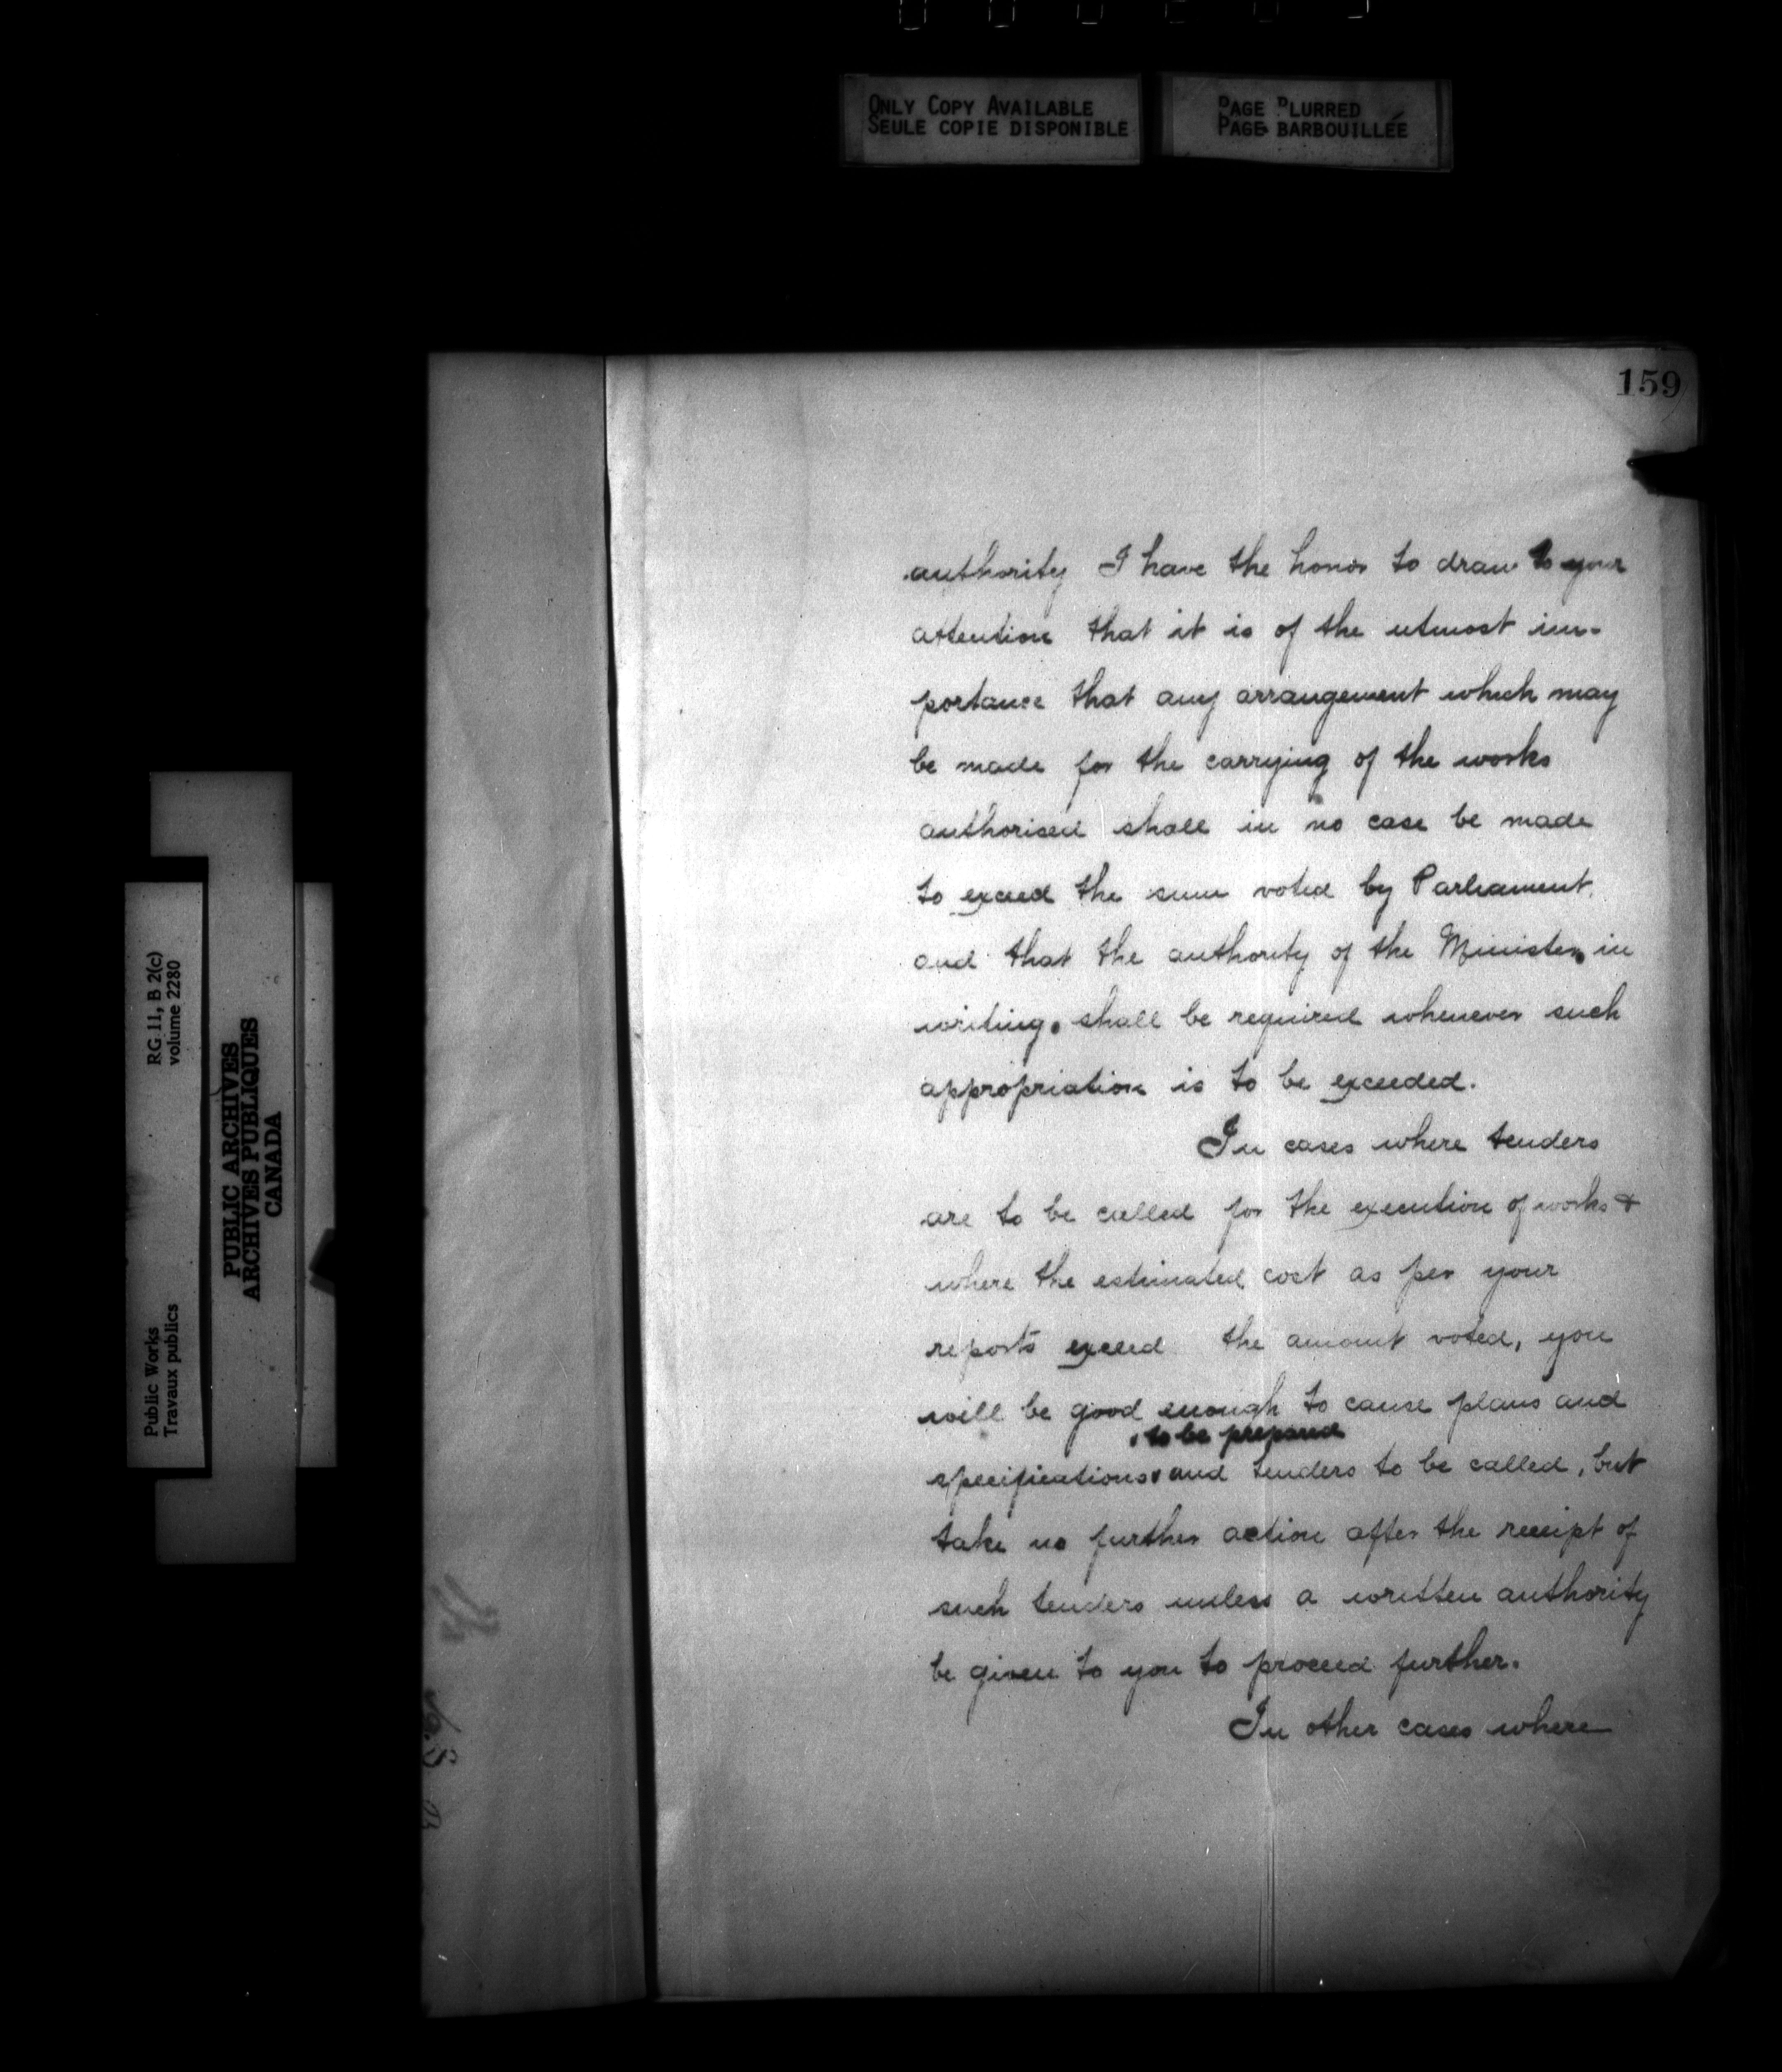 ONLY COPY AVAILABLE
SEULE COPIE DISPONIBLE
PAGE BLURRED
PAGE BARBOUILLÉE
159
authority I have the honor to draw to your
attention that it is of the utmost im-
portance that any arrangement which may
be made for the carrying of the works
authorised shall in no case be made
to exceed the sum voted by Parliament,
and that the authority of the Minister, in
writing, shall be required whenever such
appropriation is to be exceeded.
In cases where tenders
are to be called for the execution of works &
where the estimated cost as per your
reports exceed the amount voted, you
will be good enough to cause plans and
, to be prepared
specifications, and tenders to be called, but
take no further action after the receipt of
such tenders unless a written authority
be given to you to proceed further.
In other cases where
RG 11, B 2(c)
volume 2280
PUBLIC ARCHIVES
ARCHIVES PUBLIQUES
CANADA
Public Works
Travaux publics